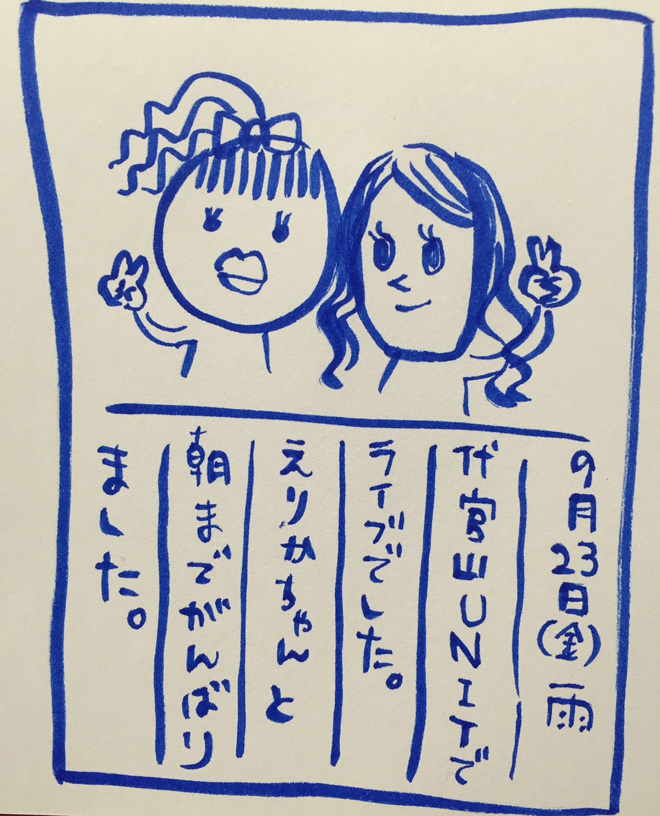 9月23日(金)雨
代官山UNITで
ライブでした。
えりかちゃんと
朝までがんばり
ました。